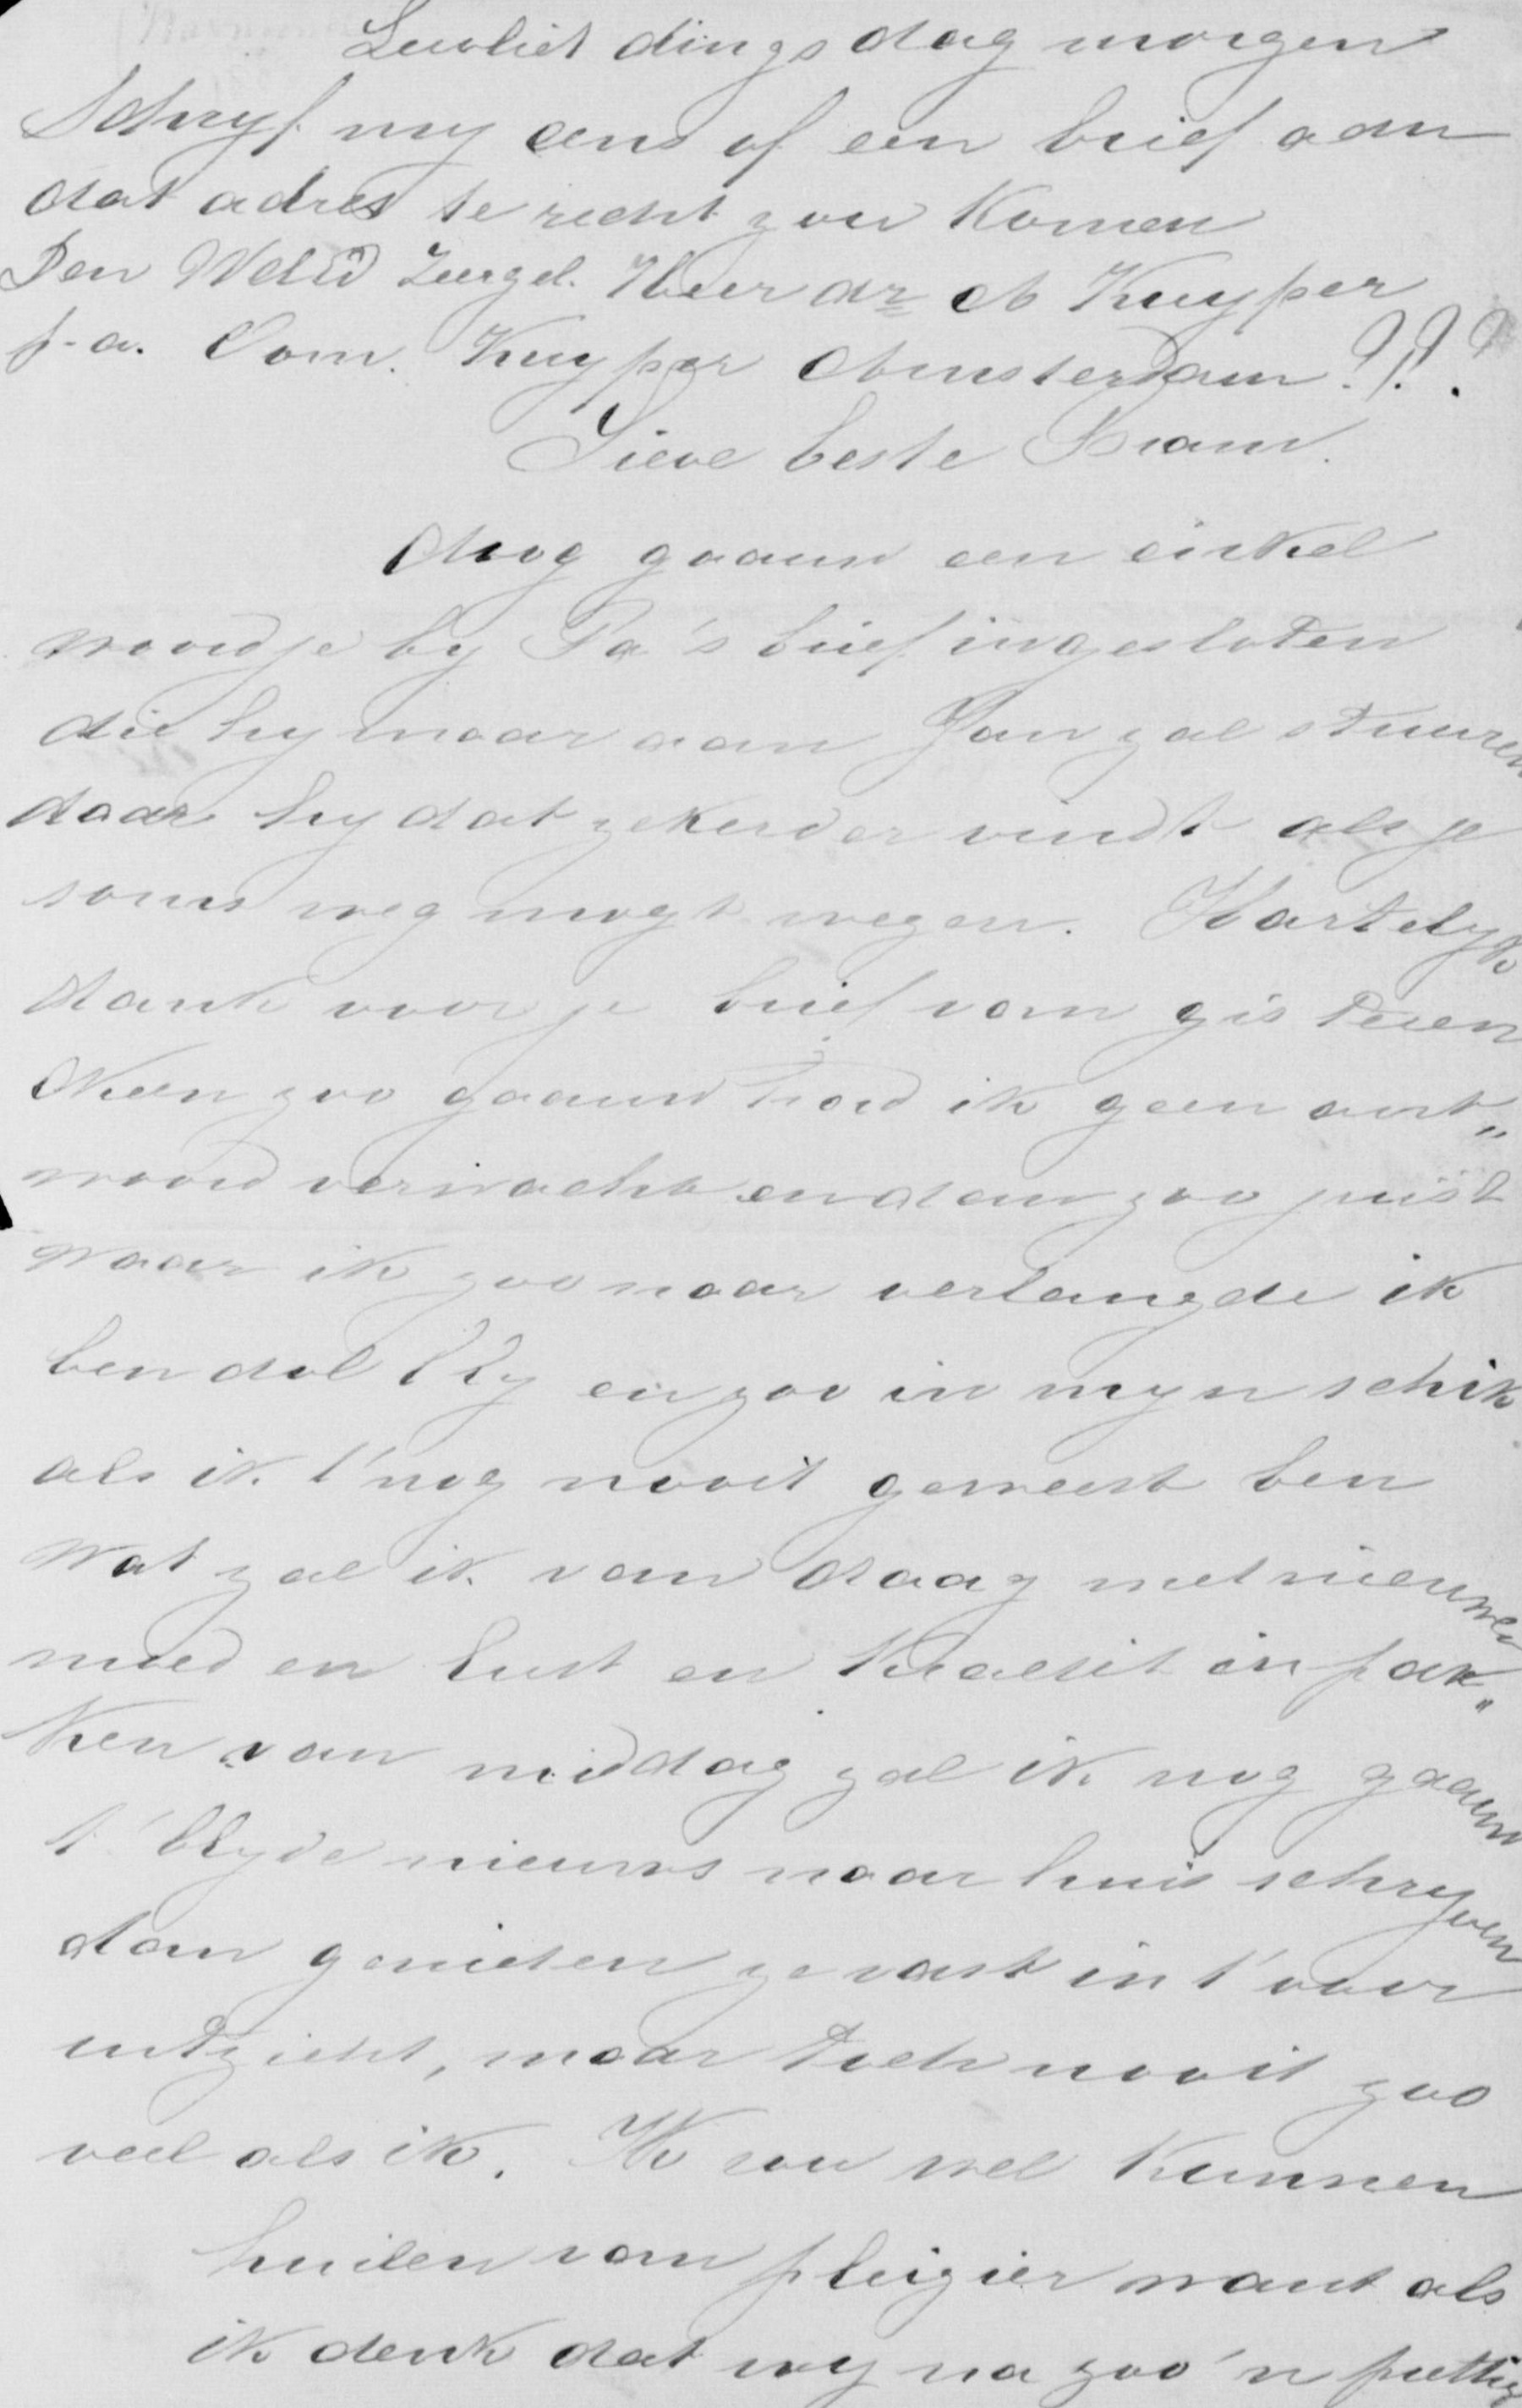 Leuvliet dingsdag morgen
Schryf my eens of een brief aan
dat adres te recht zou komen
Den WelEd Zeergel. Heer dr A Kuyper
p.a. Dom. Kuyper Amsterdam?!?!?
Lieve beste Bram.
Nog gaauw een enkel
woordje by Pa's brief ingesloten
die hy maar aan Jan zal stuuren
daar hy dat zekerder vindt als je
soms weg mogt wezen. Hartelyk
dank voor je brief van gisteren
Neen zoo gaauw had ik geen ant„
woord verwacht en dan zoo juist
waar ik zoo naar verlangde ik
ben dol bly en zoo in myn schik
als ik t'nog nooit geweest ben
Wat zal ik van daag met nieuwen
moed en lust en kracht inpak„
ken van middag zal ik nog gaauw
t'blyde nieuws naar huis schryven
dan genieten ze vast in t'voor
uitzicht, maar toch nooit zoo
veel als ik. Ik zou wel kunnen
huilen van pleizier want als
ik denk dat wy na zoo'n prettig